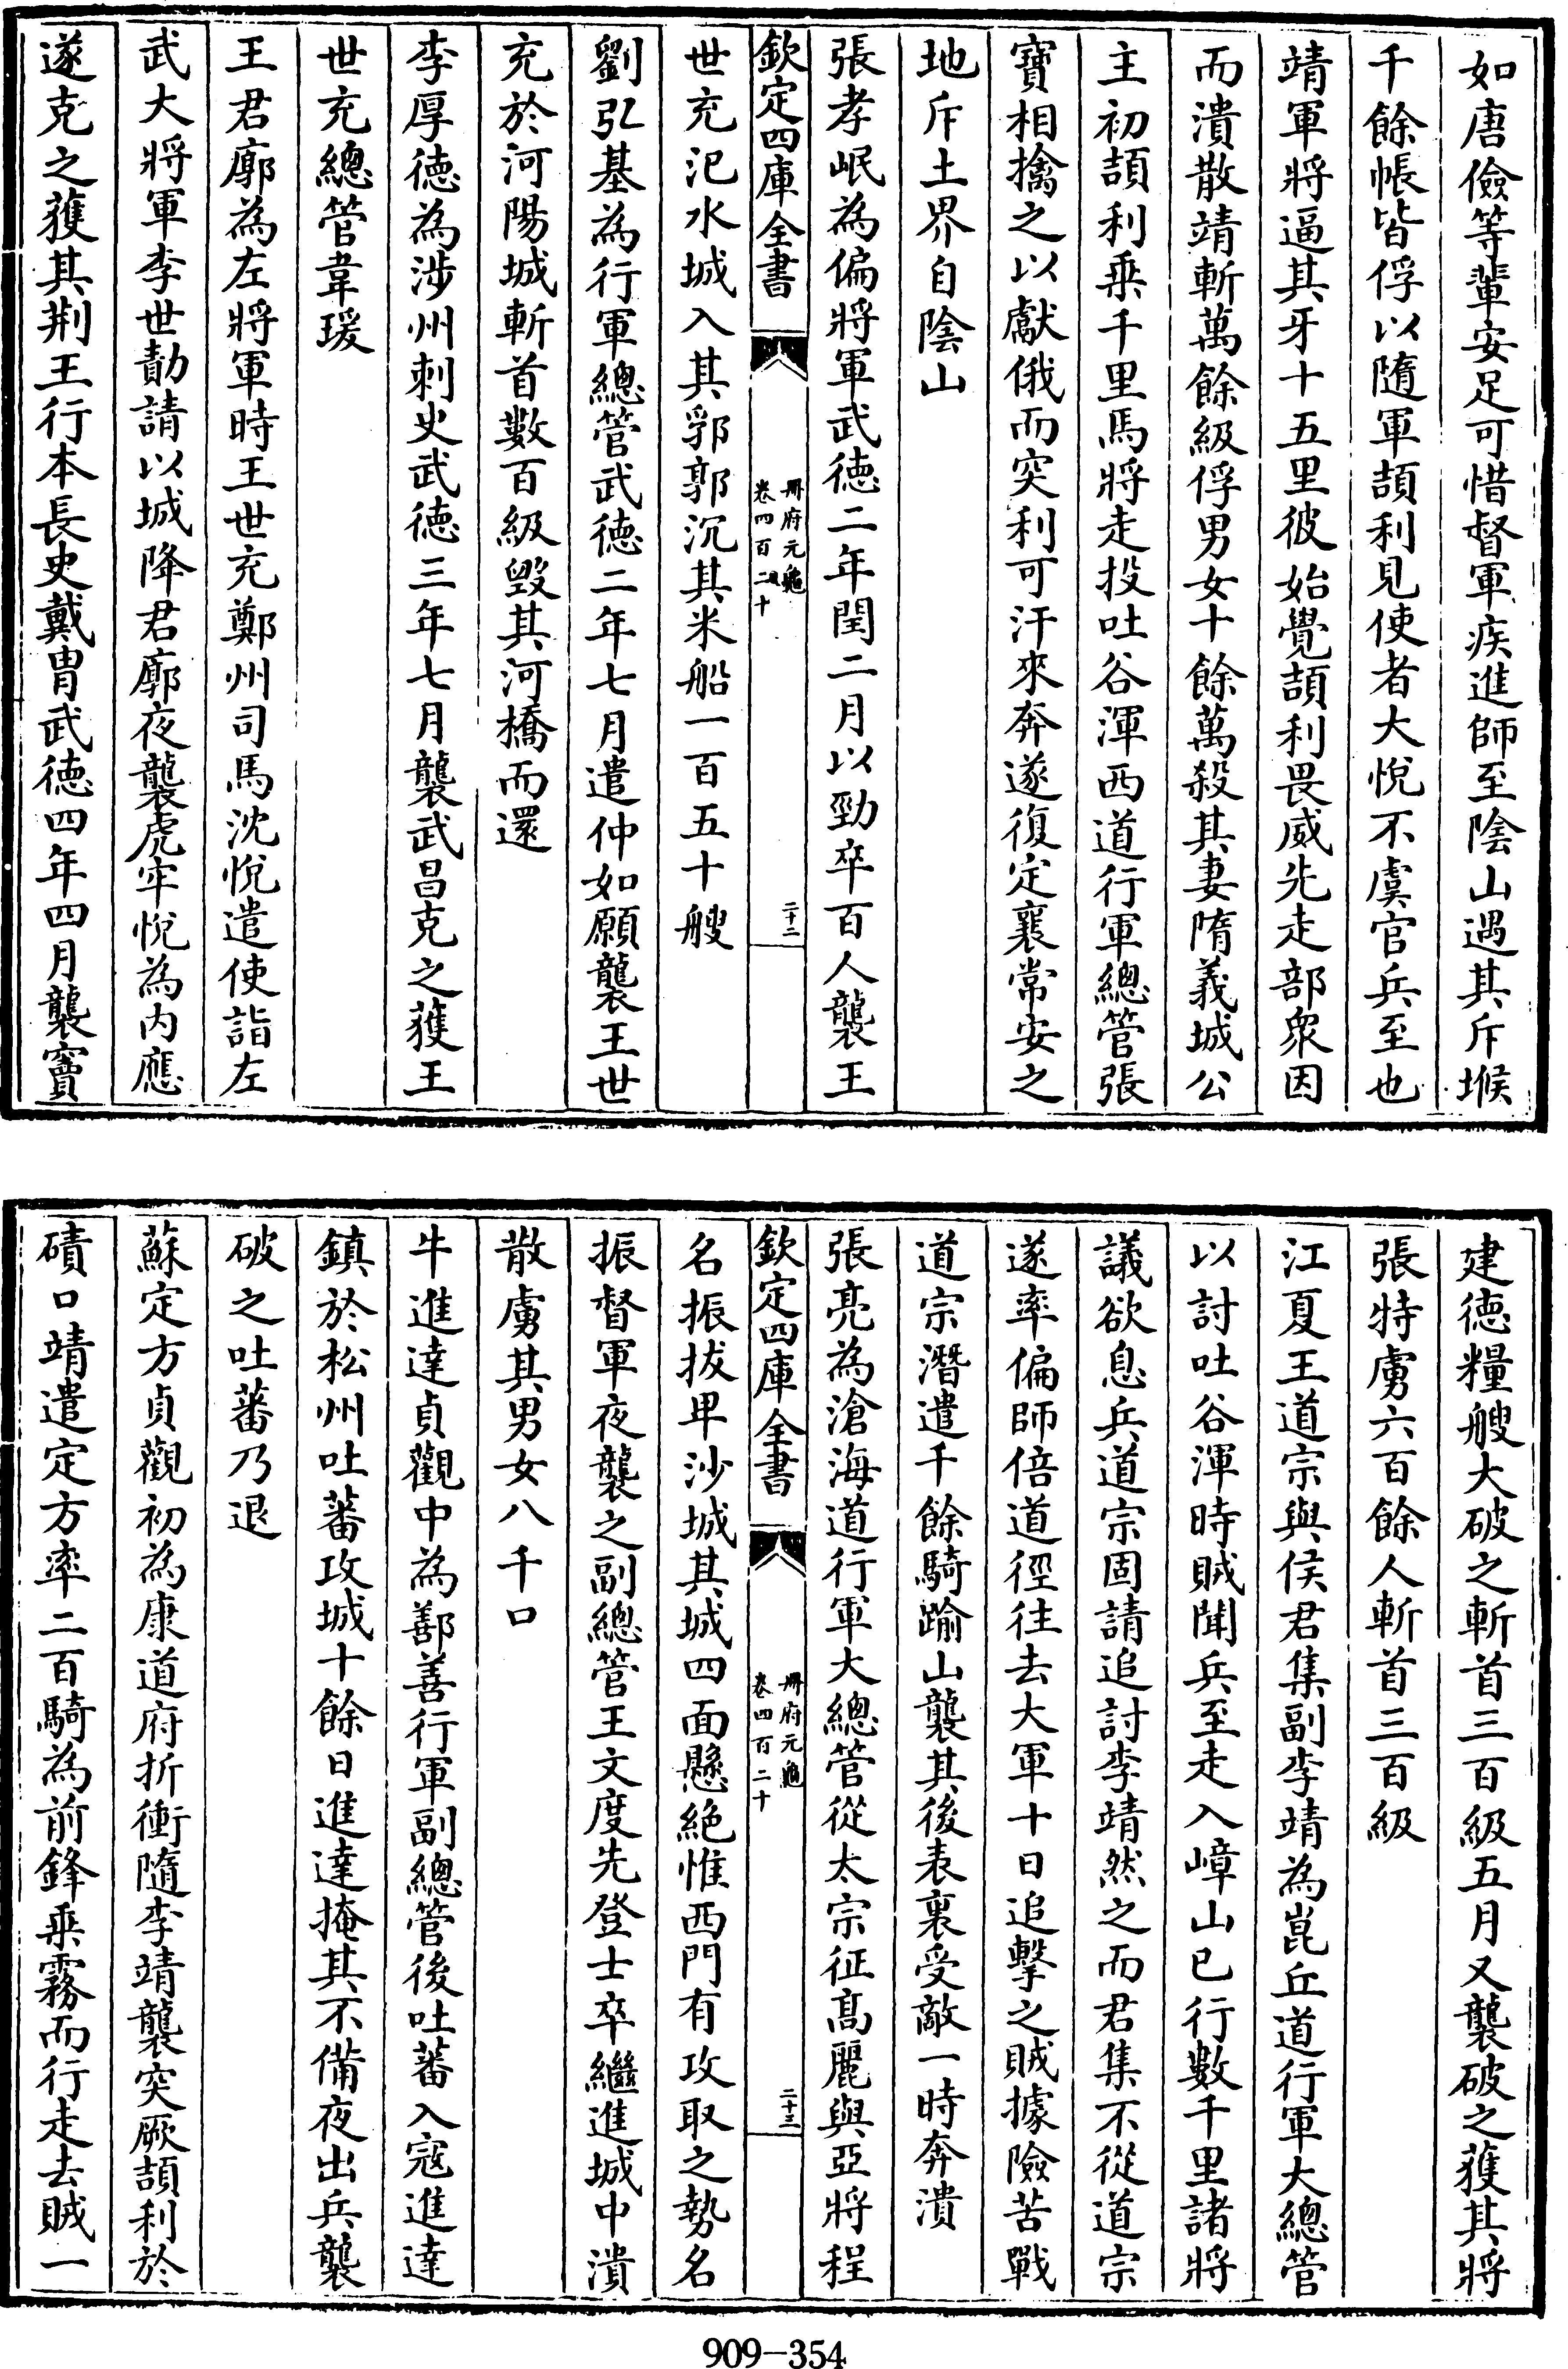 如唐儉等輩安足可惜督軍疾進師至陰山遇其斥堠
千餘帳皆俘以隨軍頡利見使者大悅不虞官兵至也
靖軍將逼其牙十五里彼始覺頡利畏威先走部衆因
而潰散靖斬萬餘級俘男女十餘萬殺其妻隋義城公
主初頡利乘千里馬將走投吐谷渾西道行軍總管張
寶相擒之以獻俄而突利可汗來奔遂復定襄常安之
地斥土界自陰山
張孝岷為偏將軍武德二年閏二月以勁卒百人襲王
欽定四庫全書
冊府元龜
卷四百二十
二十二
世充汜水城入其郛郭沉其米船一百五十艘
劉弘基為行軍總管武德二年七月遣仲如願襲王世
充於河陽城斬首數百級毀其河橋而還
李厚德為涉州刺史武德三年七月襲武昌克之獲王
世充總管韋瑗
王君廓為左將軍時王世充鄭州司馬沈悅遣使詣左
武大將軍李世勣請以城降君廓夜襲虎牢悅為內應
遂克之獲其荆王行本長史戴胄武德四年四月襲竇
建德糧艘大破之斬首三百級五月又襲破之獲其將
張特虜六百餘人斬首三百級
江夏王道宗與侯君集副李靖為崑丘道行軍大總管
以討吐谷渾時賊聞兵至走入嶂山已行數千里諸將
議欲息兵道宗固請追討李靖然之而君集不從道宗
遂率偏師倍道徑往去大軍十日追擊之賊據險苦戰
道宗潛遣千餘騎踰山襲其後表裏受敵一時奔潰
張亮為滄海道行軍大總管從太宗征高麗與亞將程
欽定四庫全書
冊府元龜
卷四百二十
二十三
名振拔卑沙城其城四面懸絶惟西門有攻取之勢名
振督軍夜襲之副總管王文度先登士卒繼進城中潰
散虜其男女八千口
牛進達貞觀中為鄯善行軍副總管後吐蕃入寇進達
鎮於松州吐蕃攻城十餘日進達掩其不備夜出兵襲
破之吐蕃乃退
蘇定方貞觀初為康道府折衝隨李靖襲突厥頡利於
磧口靖遣定方率二百騎為前鋒乘霧而行走去賊一
909-354